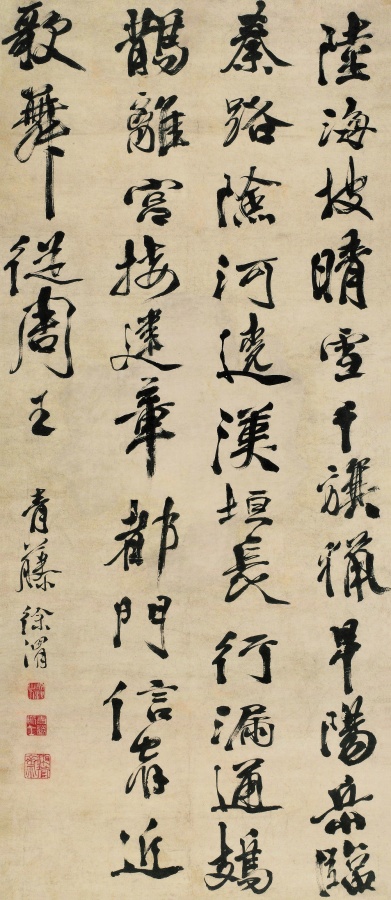 陸海披晴雪千旗獵早陽岳臨
秦路險河遶漢垣長行漏通鳷
鵲離宮接建章都門信宵近
歌舞從周王 青藤徐渭